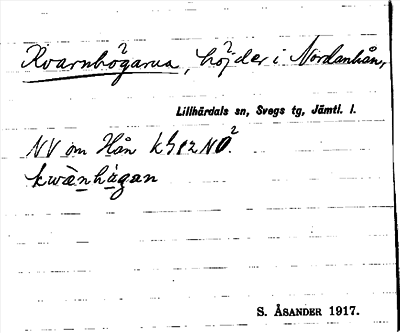 Kvarnhögarna, höjder i Nordanhån,
Lillhärdals sn, Svegs tg, Jämtl. l.
NV om Hån k
kwànhàgan
S. ÅSANDER 1917.